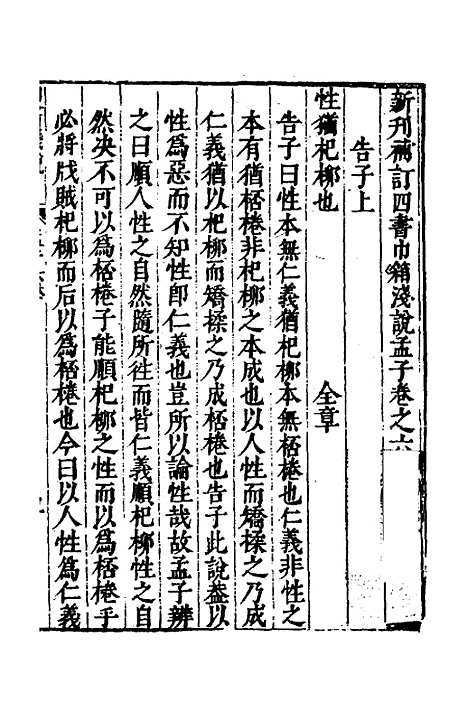 新刊補訂四書巾箱淺說孟子卷之六
告子上
性猶杞柳也　全章
告子曰性本無仁義猶杞柳本無桮棬也仁義非性之
本有猶桮棬非杞柳之本成也以人性而矯揉之乃成
仁義猶以杞柳而矯揉之乃成桮棬也告子此說盖以
性爲惡而不知性卽仁義也豈所以論性哉故孟子辨
之曰順人性之自然隨所徃而皆仁義順杞柳性之自
然决不可以爲桮棬子能順杞柳之性而以爲桮棬乎
必將戕賊杞柳而后以爲桮棬也今曰以人性爲仁義